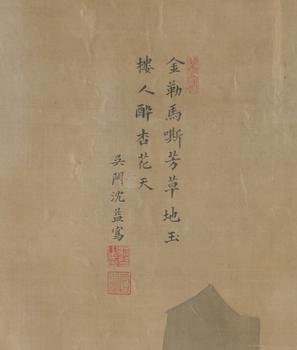 金勒馬嘶芳草地玉
樓人醉杏花天
吳門沈益寫